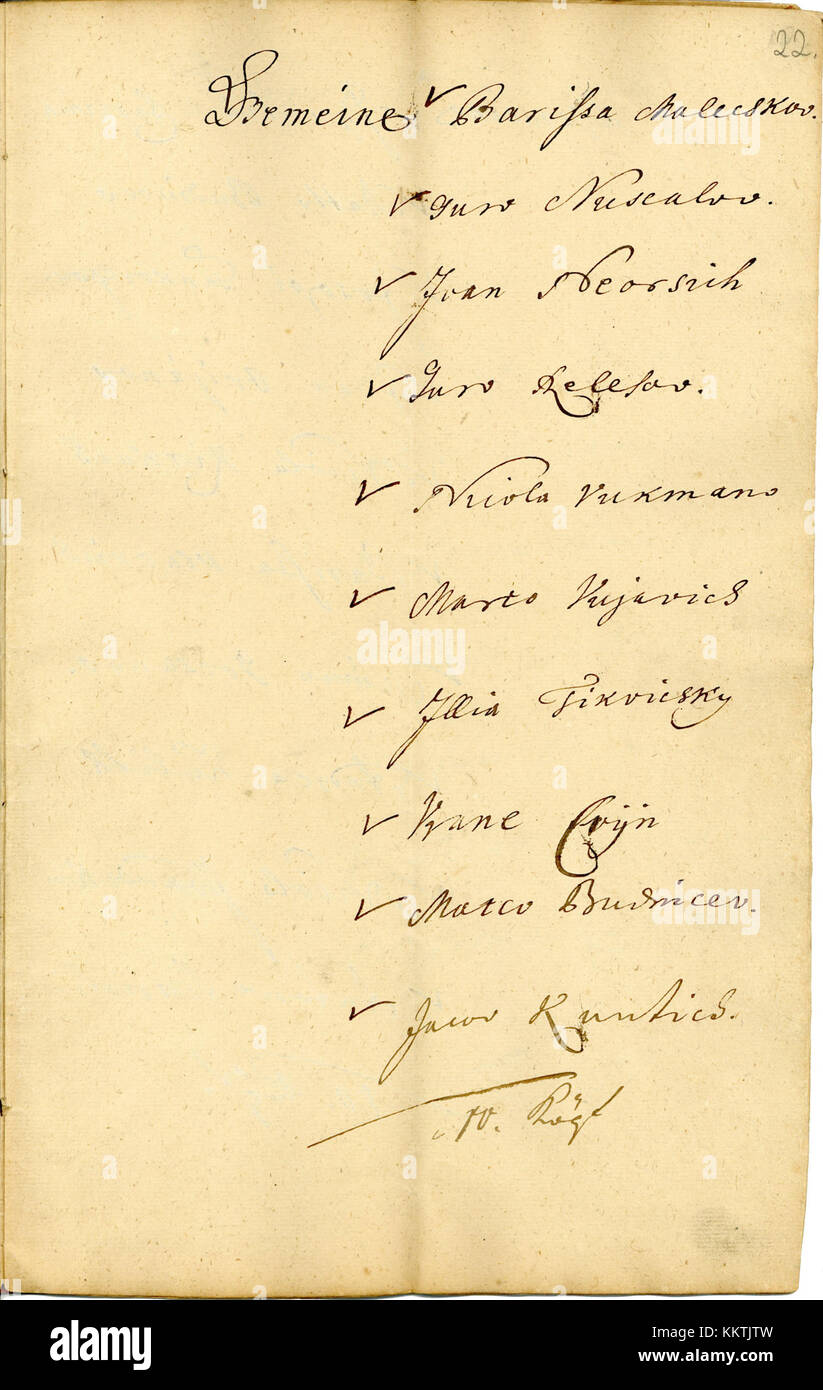 22.
Gemeine Barissa Malecskov.
Juro Nuscalov.
Ivan Neorsich
Juro Kelesov.
Nicola Vukmano
Marco Vujavich
Illia Tikvicsky
Vrane Cvijn
Marco Budnicev.
Jacov Kuntich.
10. Köpf
alamy
alamy
Image ID: KKTJTW
www.alamy.com